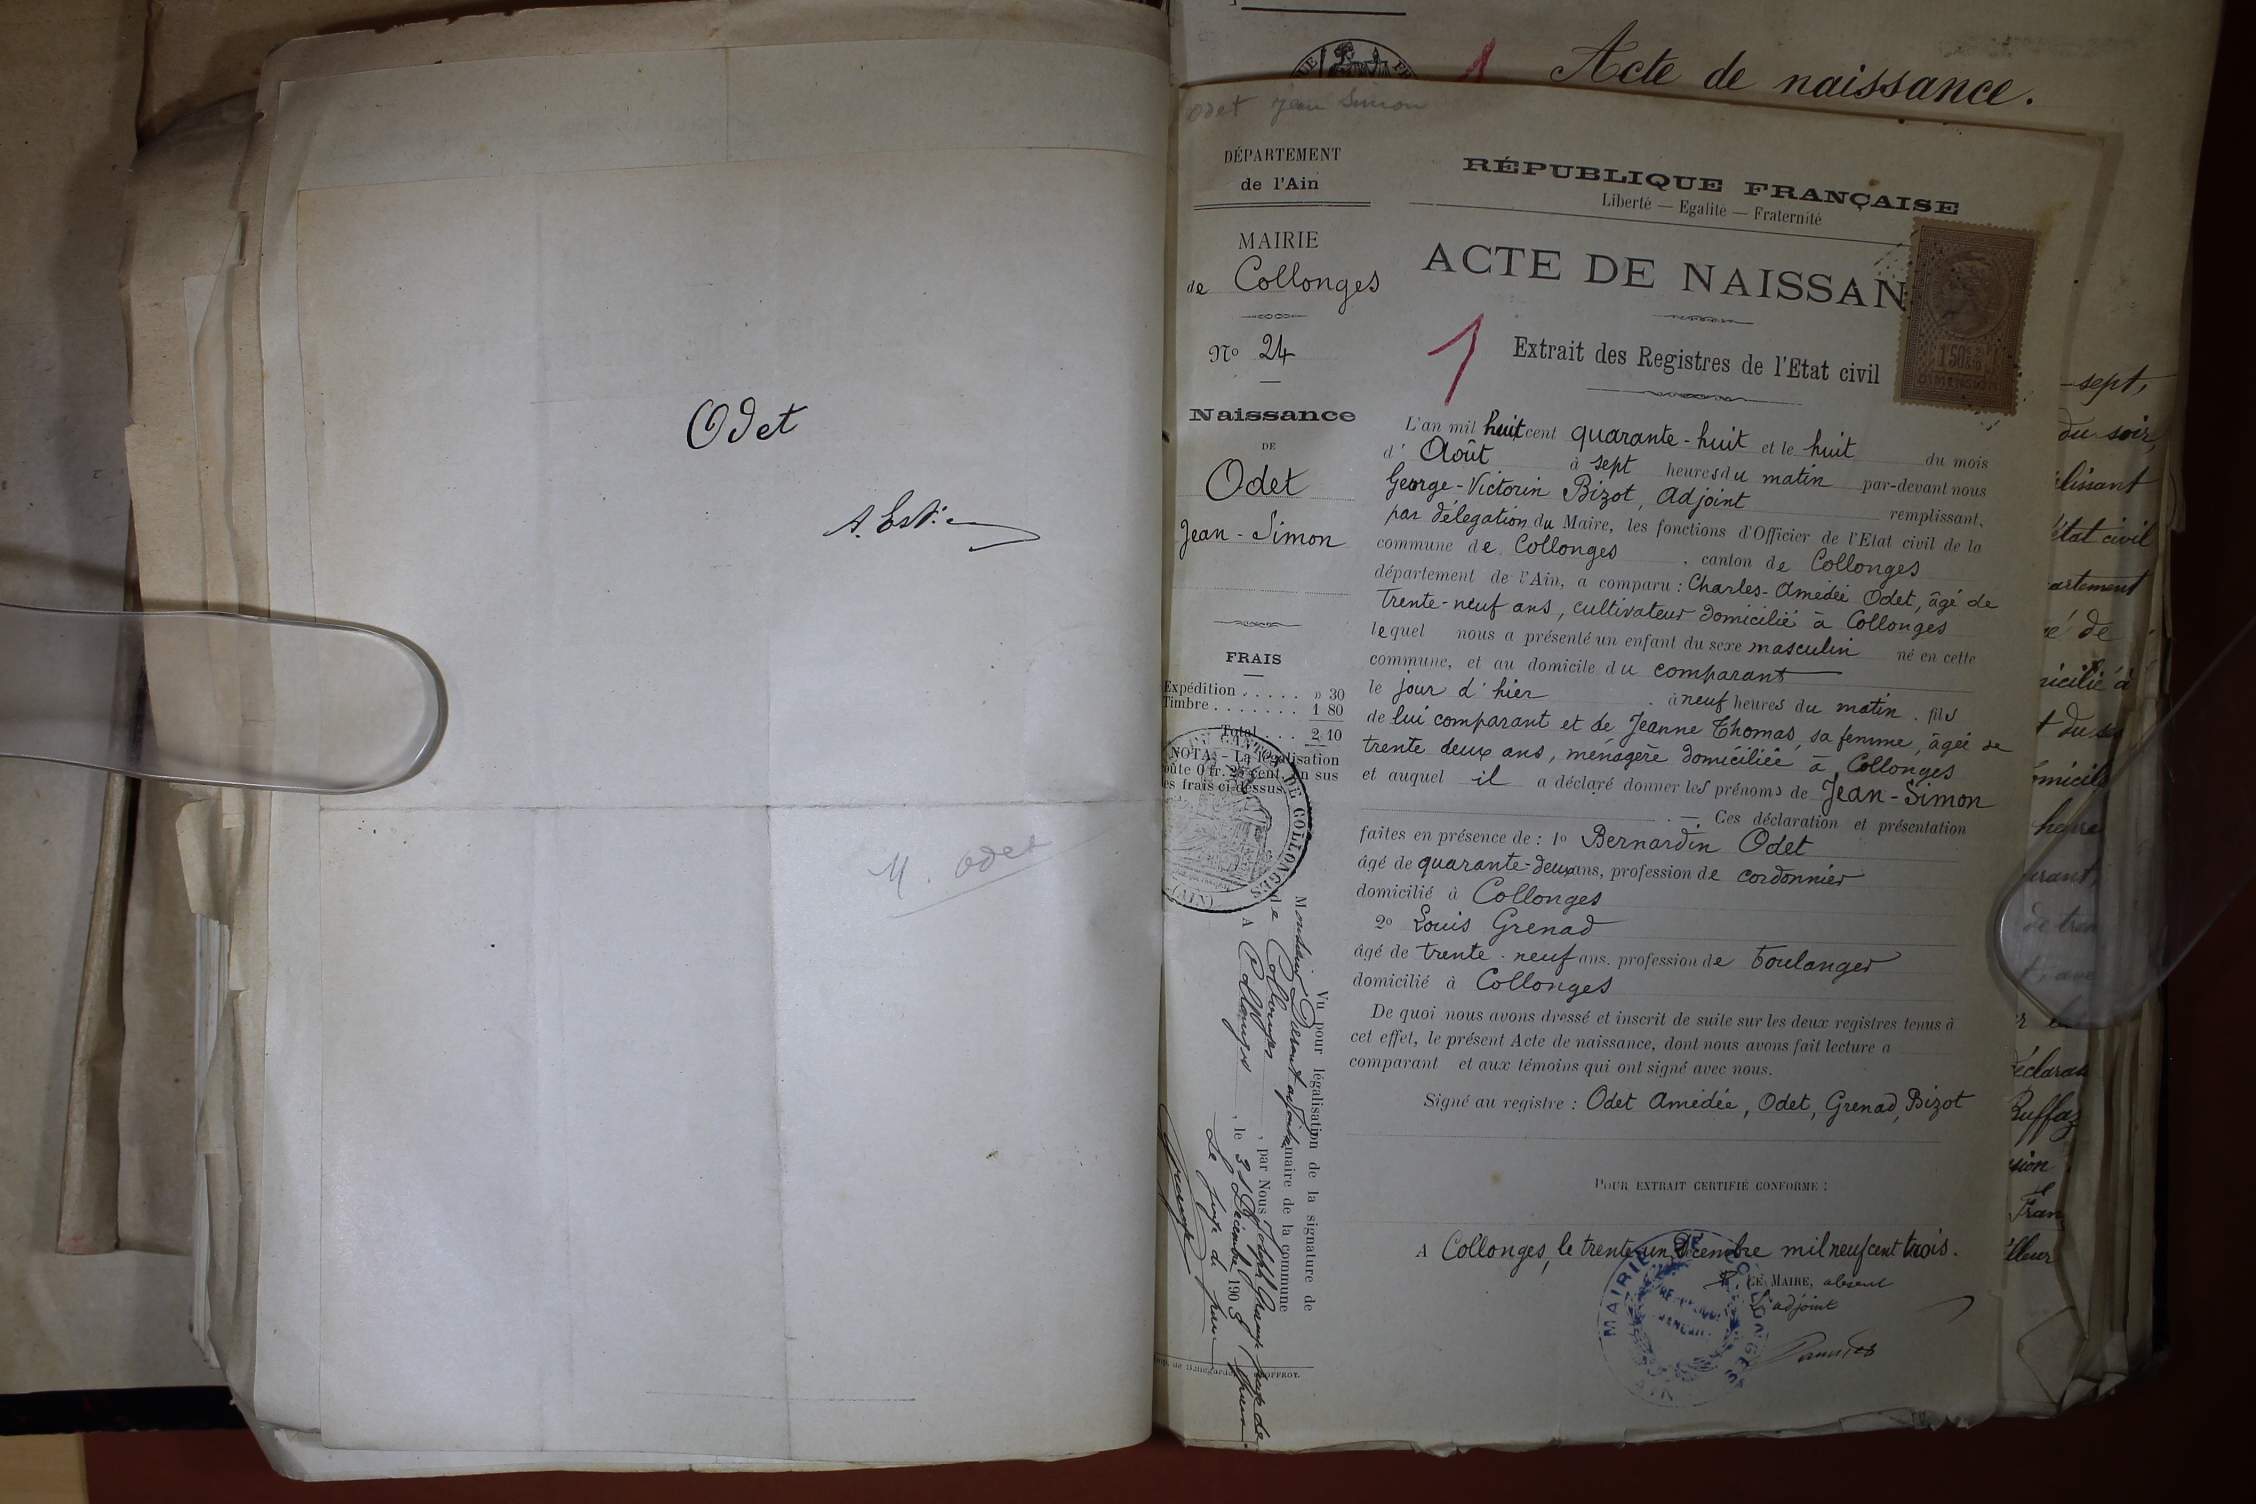 Odet
M. Odet
Acte de naissance.
Odet Jean Simon
DÉPARTEMENT
de l'Ain
MAIRIE
de Collonges
No 24
Naissance
DE
Odet
Jean-Simon
FRAIS
Expédition . . . . . » 30
Timbre . . . . . . . 1 80
Total . . . 2 10
NOTA. - La légalisation
coûte 0 fr. 25 cent. en sus
des frais ci-dessus.
DU CANTON DE COLLONGES
(AIN)
Vu pour légalisation de la signature de
Monsieur adjoint maire de la commune
de Collonges, par Nous Joseph juge de
A Collonges, le 31 Décembre 1903
Le juge de paix
RÉPUBLIQUE FRANÇAISE
Liberté — Egalité — Fraternité
ACTE DE NAISSAN
1
Extrait des Registres de l'Etat civil
L'an mil huit cent quarante-huit et le huit du mois
d'Août à sept heures du matin par-devant nous
George-Victorin Bizot, Adjoint remplissant,
par délégation du Maire, les fonctions d'Officier de l'Etat civil de la
commune de Collonges, canton de Collonges
département de l'Ain, a comparu : Charles-Amédée Odet, âgé de
trente-neuf ans, cultivateur domicilié à Collonges
lequel nous a présenté un enfant du sexe masculin né en cette
commune, et au domicile du comparant
le jour d'hier à neuf heures du matin. fils
de lui comparant et de Jeanne Thomas, sa femme, âgée de
trente deux ans, ménagère domiciliée à Collonges
et auquel il a déclaré donner les prénoms de Jean-Simon
. — Ces déclaration et présentation
faites en présence de : 1o Bernardin Odet
âgé de quarante-deux ans, profession de cordonnier
domicilié à Collonges
2o Louis Grenad
âgé de trente-neuf ans. profession de boulanger
domicilié à Collonges
De quoi nous avons dressé et inscrit de suite sur les deux registres tenus à
cet effet, le présent Acte de naissance, dont nous avons fait lecture a
comparant et aux témoins qui ont signé avec nous.
Signé au registre : Odet Amédée, Odet, Grenad, Bizot
POUR EXTRAIT CERTIFIÉ CONFORME :
A Collonges, le trente un Décembre mil neuf cent trois.
LE MAIRE, absent
L'adjoint
MAIRIE DE COLLONGES
AIN
-sept,
du soir,
état civil
artement
é de